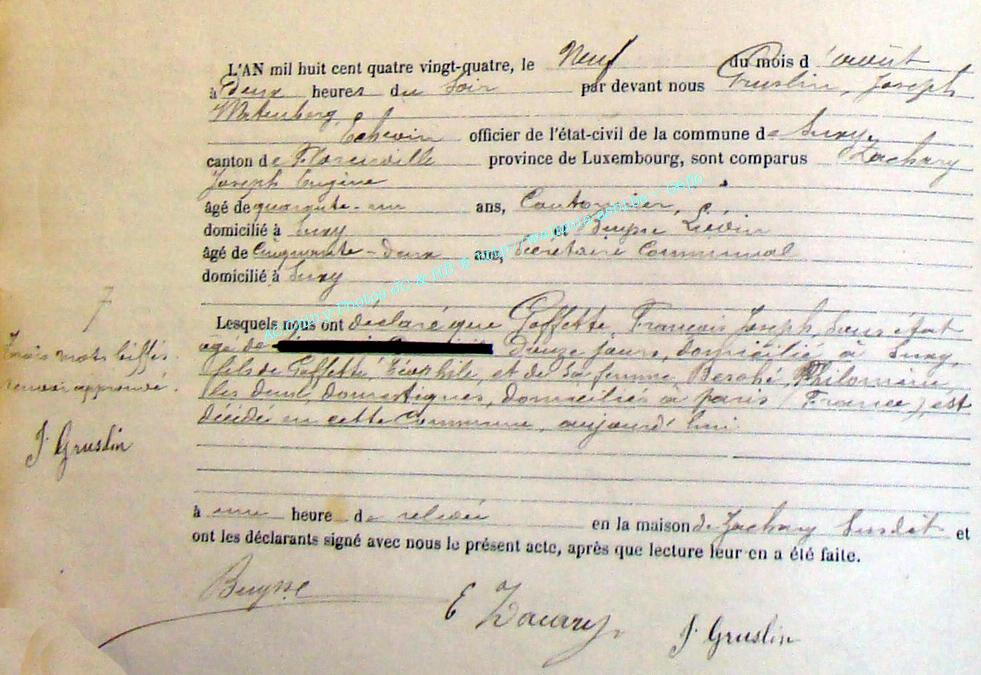 L'AN mil huit cent quatre vingt-quatre, le Neuf du mois d'août
à Deux heures du Soir par devant nous Gruslin, Joseph
Echevin officier de l'état-civil de la commune de Suxy,
canton de Florenville province de Luxembourg, sont comparus Zachary
Joseph Eugène
âgé de quarante-un ans, Cantonnier,
domicilié à Suxy et Buysse Liévin
âgé de Cinquante-Deux ans, Secrétaire Communal
domicilié à Suxy
7
Lesquels nous ont déclaré que Goffette, François Joseph, Sans état
agé de Douze jours, domicilié à Suxy,
fils de Goffette, Téophile, et de Sa femme Philomène,
les deux domestiques, domiciliés à paris (France), est
décédé en cette Commune, aujourd'hui
Trois mots biffés
renvoi approuvé.
J Gruslin
à une heure de relevée en la maison de Zachary Susdit et
ont les déclarants signé avec nous le présent acte, après que lecture leur en a été faite.
Buysse
E Zacary
J Gruslin